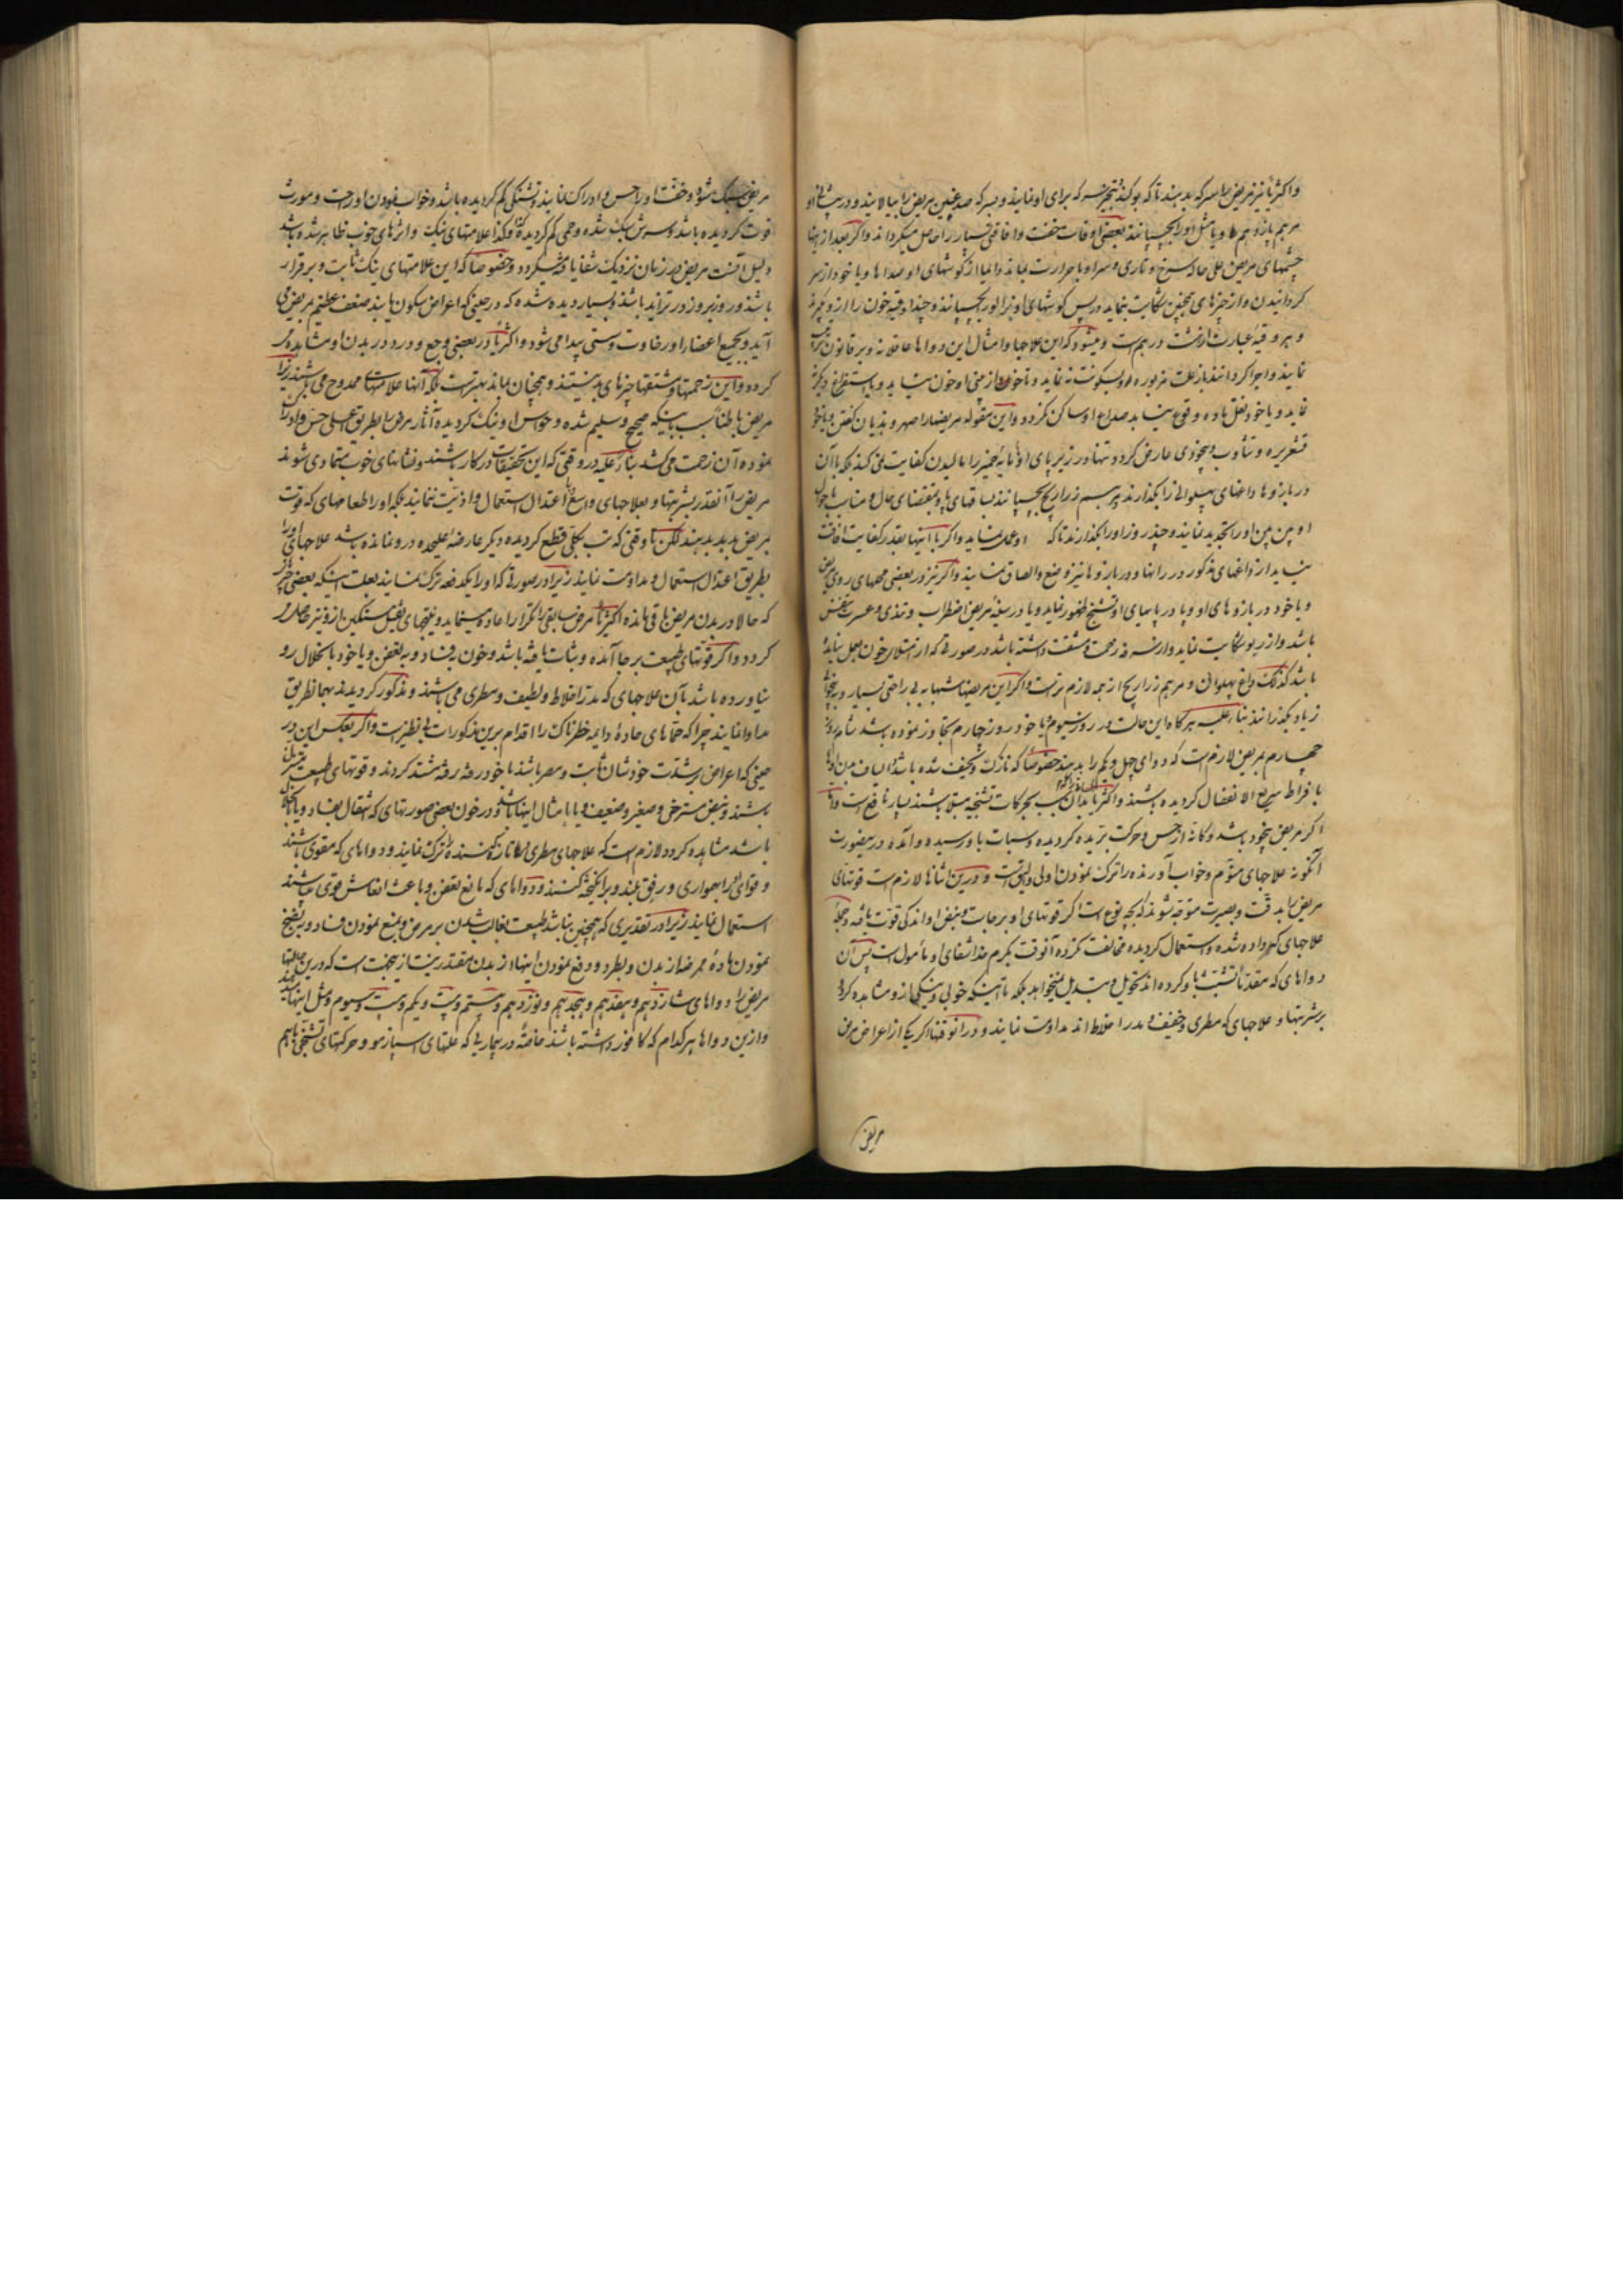 واکثریا نیز مریض را سرکه بدهند تا که بو کند و تبخیر سرکه برای او نمایند و بسرکه صدغین مریض را بیالایند و در پیشانی او
مرهم پازدهم و یا مثل او را بچسپانند بعضی اوقات خفت وافاقتی بسیار را حاصل میکرداند واکر بعد از اینها
چشمهای مریض علی حاله سرخ و ناری و سر او با حرارت بماند و ایما از کوشهای او صداها و یا خود از سر
کردانیدن واز چیزهای همچنین شکایت بنماید در پس کوشهای او زالو بچسپانند و چند اوقیه خون را ازو بیرون
و هر وقیه عبارت از هشت درهم است و میشود که این علاجها و امثال این دواها عاقلانه و بر قانون
نمایند واجرا کردانند باز علت مزبوره سکونت نه نماید و تا خون از بینی او خون نیاید و یا استفراغ دیگر
نماید و یا خود نقل ماده وقوع نیابد صداع او ساکن نکردد و این مقوله مریضها را سهر و هذیان کفتن و یا خود
قشعریره و تثاوب و بیخودی عارض کردد و تنها در زیر پای او مایه خمیر را مالیدن کفایت نمی کند بلکه با آن
در بازوها داغهای پهلوانی را بکذارند و مرهم زراریح بچسپانند بساقهای پا و بمقتضای حال و مناسب باحوال
او پس پس او را تجدید نمایند و چند روز او را بکذارند تا که او عمل نماید واکر با اینها بقدر کفایت افاقت
نیابد از داغهای مذکور در رانها و در بازوها نیز وضع و الصاق نمایند واکر نیز در بعضی محلهای روی مریض
و یا خود در بازوهای او و یا در پاهای او تشنج ظهور نماید و یا در سینه مریض اضطراب و تمدی و عسرت تنفس
باشد واز ربو شکایت نماید واز سرفه زحمت و مشقت داشته باشد در صورتی که از امتلاء خون بعمل نیامده
باشد کذلک داغ پهلوانی و مرهم زراریح از همه لازم تر است واکر این مریضها شبها به بی راحتی بسیار و بیخوابی
زیاد بکذرانند بناء علیه هرکاه این حالت در روز سیوم و یا خود روز چهارم تجاوز نموده باشد شام روز
چهارم مریض لازم است که دوای چهل و یکم را بدهند خصوصا که نازک و نحیف شده باشد و الیاف بدن او
بافراط سریع الانفعال کردیده باشند واکثریا بدان سبب بحرکات تشنجیه مبتلا باشند بسیار نافع است واما
اکر مریض بیخود باشد و کانه از حس و حرکت بریده کردیده و سبات باو رسیده و آمده درینصورت
آنکونه علاجهای منوم و خواب آورنده را ترک نمودن اولی و الیق است و درین اثناها لازم است قوتهای
مریض را بدقت و بصیرت متوجه شوند که بچه نوع است اکر قوتهای او برجاست و نبض او اندکی قوت یافته و جمله
علاجهای که باو داده شده و استعمال کردیده مخالفت نکرده آنوقت بکرم خدا شفای او مأمول است پس آن
دواهای که مقدما تشبث باو کرده اند تحویل و تبدیل نمیخواهد بلکه تا اینکه خوبی و نیکی ازو مشاهده کردد
بر شربتها و علاجهای که مطری و خفیف و مدر اخلاط اند مداومت نمایند و در آنوقتها اکر یکی از اعراض مرض
مریض
مریض سبک شود و خفت او را حس و ادراک نمایند و تشنکی کم کردیده باشد و خواب نمودن او راحت و مورث
قوت کردیده باشد و سرش سبک شده و حمی کم کردیده و کذا علامتهای نیک و اثرهای خوب ظاهر شده باشد
دلیل آنست مریض در زمان نزدیک شفا یافته میکردد و خصوصا که این علامتهای نیک ثابت و برقرار
باشند و روز بروز در تزاید باشند و بسیار دیده شده که در حینی که اعراض سکون یابند ضعف عظیم بمریض می
آید و بجمیع اعضاء او رخاوت و سستی پیدا می شود واکثریا در بعضی وجع و درد در بدن او مشاهده
کردد و این زحمتها و مشقتها چیزهای بد نیستند و همچنان بماند بهتر است بلکه آنها علامتهای ممدوح می باشند زیرا
مریض باطنا بسبب اینکه صحیح و سلیم شده و حواس او نیک کردیده آثار مرض را بطریق اعلی حس و ادراک
نموده آن زحمت می کشد بناء علیه در وقتی که این تحقیقات درکار باشند و نشانهای خوب متمادی شوند
مریض را آنقدر بشربتها و بعلاجهای واسع اعتدال استعمال و اذیت ننمایند بلکه او را طعامهای که قوت
بمریض بدهد بدهند لکن تا وقتی که تب بکلی قطع کردیده و دیگر عارضه علیحده درو نمانده باشد علاجهای او را
بطریق اعتدال استعمال و مداومت نمایند زیرا در صورتی که او را یکدفعه ترک نمایند بعلت اینکه بعضی
که حالا در بدن مریض باقی مانده اکثریا مرض سابق را تکرارا اعاده مینماید و نتیجهای ثقیل و سنکین ازو نیز حاصل
کردد واکر قوتهای طبیعت برجا آمده و ثبات یافته باشد و خون بفساد و به تعفن و یا خود بانحلال رو
نیاورده باشد بآن علاجهای که مدر اخلاط و لطیف و مطری می باشند و مذکور کردیدند بهمانطریق
مداوا نمایند چرا که حماهای حاده دایمه خطرناک را اقدام برین مذکورات بی نظیر است واکر بعکس این در
حینی که اعراض بر شدت خودشان ثابت و مصر باشند یا خود رفته رفته مشتد کردند و قوتهای طبیعت متنزل
باشند و نبض مسترخی و صغیر و ضعیف و یا بامثال اینها باشد و در خون بعضی صورتهای که انتقال بفساد و یا بانحلال
باشد مشاهده کردد لازم است که علاجهای مطری و تازه کننده را ترک نمایند و دواهای که مقوی باشند
و قوای او را بهمواری و رفق بلند و برانکیخته کنند و دواهای که مانع تعفن و باعث انعاش قوی باشند
استعمال نمایند زیرا در تقدیری که همچنین نباشد طبیعت بغالب شدن بر مرض و بمنع نمودن فساد و بنضج
نمودن ماده ممرضه از بدن و بطرد و دفع نمودن اینها از بدن مقتدر نیست ازینجهت است که درین حالتها
مریض را دواهای شانزدهم و هفدهم و هجدهم و نوزدهم و بیستم و بیست و یکم و بیست و سیوم و مثل اینها بدهند
وازین دواها هرکدام که کافور داشته باشند خاصة در بیماریی که علتهای اسپازمو و حرکتهای تشنجی باهم